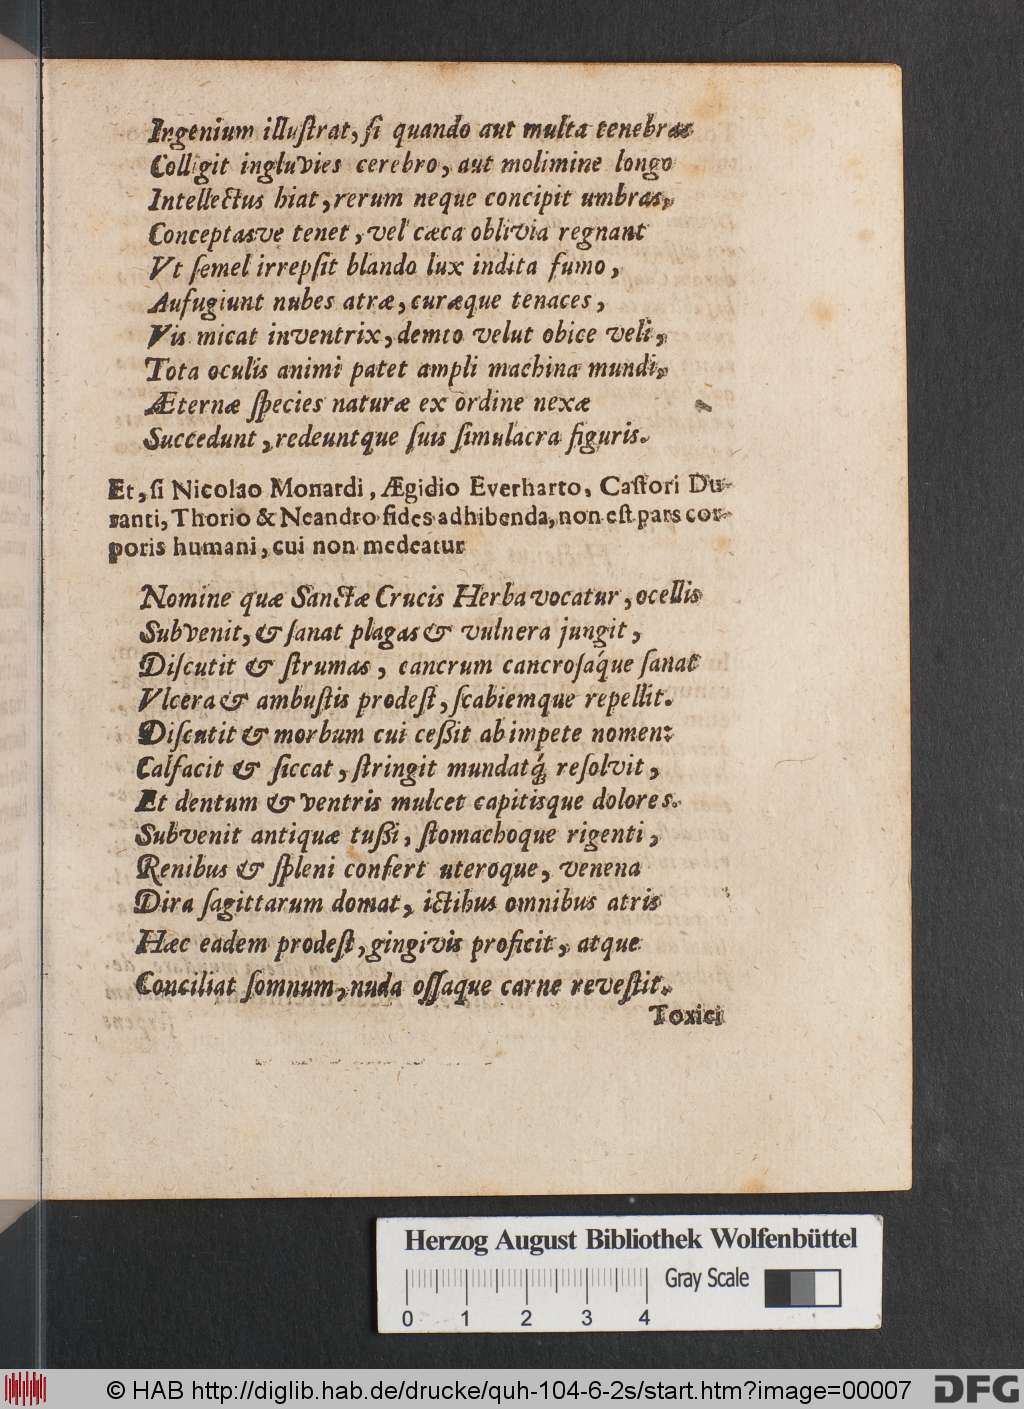 Ingenium illuſtrat, ſi quando aut multa tenebras
Colligit ingluvies cerebro, aut molimine longo
Intellectus hiat, rerum neque concipit umbras,
Conceptasve tenet, vel cæca oblivia regnant
Vt ſemel irrepſit blando lux indita fumo,
Aufugiunt nubes atræ, curæque tenaces,
Vis micat inventrix, demto velut obice veli,
Tota oculis animi patet ampli machina mundi,
Æternæ ſpecies naturæ ex ordine nexæ
Succedunt, redeuntque ſuis ſimulacra figuris.
Et, ſi Nicolao Monardi, Ægidio Everharto, Caſtori Du-
ranti, Thorio & Neandro fides adhibenda, non eſt pars cor-
poris humani, cui non medeatur
Nomine quæ Sanctæ Crucis Herba vocatur, ocellis
Subvenit, & ſanat plagas & vulnera jungit,
Diſcutit & ſtrumas, cancrum cancroſáque ſanat
Vlcera & ambuſtis prodeſt, ſcabiemque repellit.
Diſcutit & morbum cui ceßit ab impete nomen:
Calfacit & ſiccat, ſtringit mundatq́; reſolvit,
Et dentum & ventris mulcet capitisque dolores.
Subvenit antiquæ tußi, ſtomachoque rigenti,
Renibus & ſpleni confert uteroque, venena
Dira ſagittarum domat, ictibus omnibus atris
Hæc eadem prodeſt, gingivis proficit, atque
Conciliat ſomnum, nuda oſſaque carne reveſtit.
Toxici
Herzog August Bibliothek Wolfenbüttel
Gray Scale
0 1 2 3 4
© HAB http://diglib.hab.de/drucke/quh-104-6-2s/start.htm?image=00007
DFG